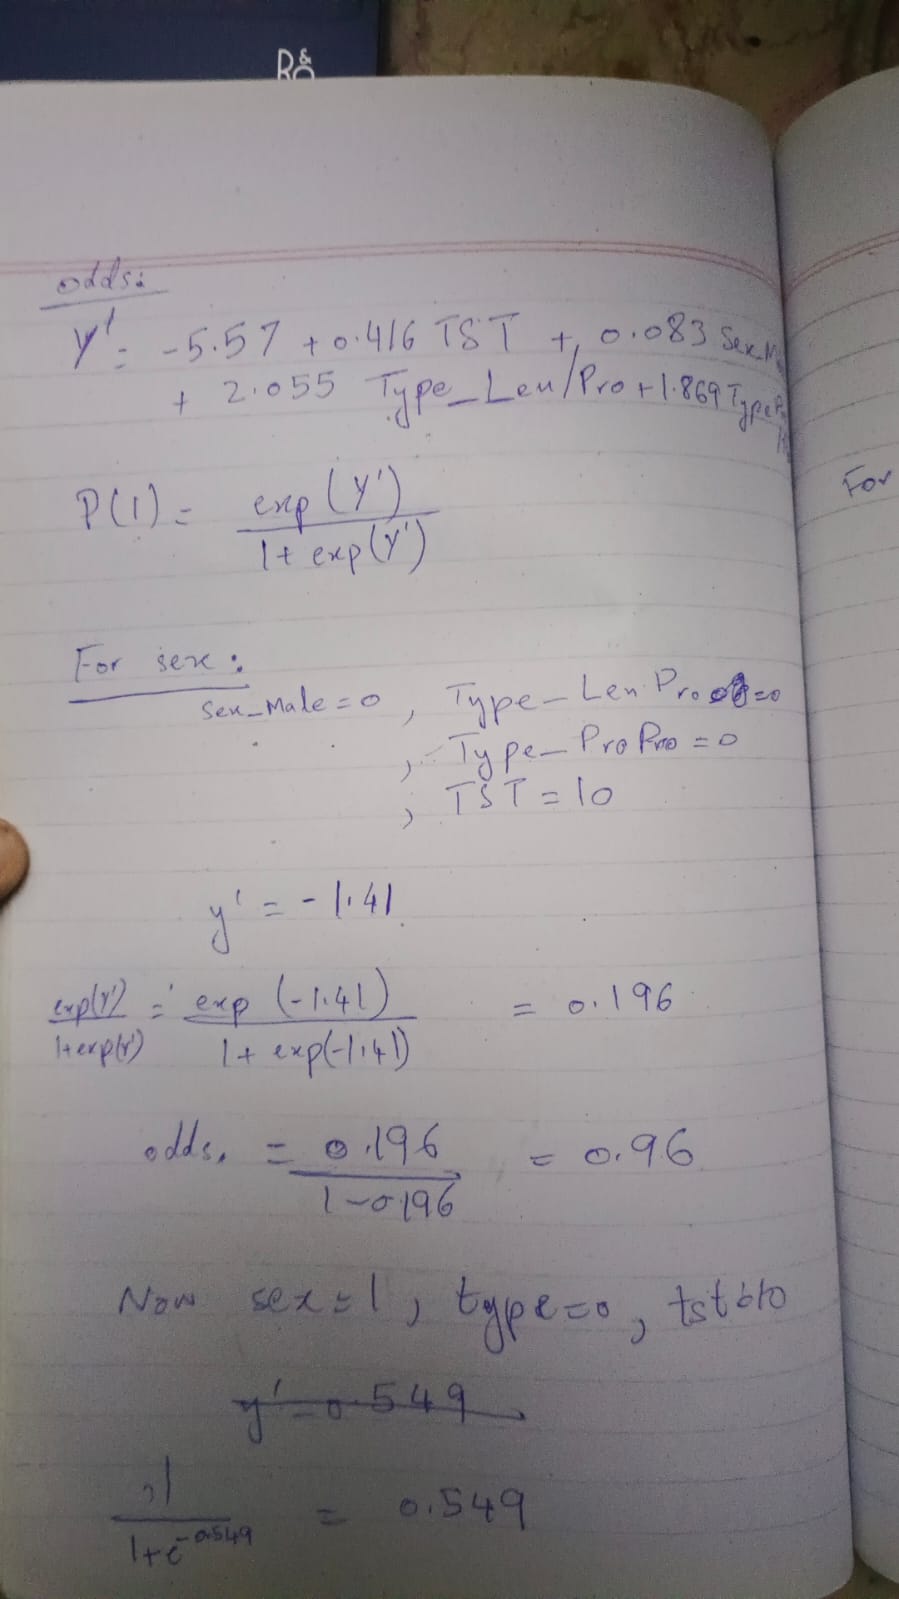 B&O
odds:
Y' = -5.57 + 0.416 TST + 0.083 Sex_M
+ 2.055 Type_Len/Pro + 1.869 Type
P(1) = exp(Y')
1+ exp(Y')
For
For sex:
Sex_Male = 0, Type_Len Pro = 0
, Type_Pro Pro = 0
, TST = 10
y' = -1.41
exp(Y') = exp (-1.41) = 0.196
1+exp(Y') 1+ exp(-1.41)
odds. = 0.196 = 0.96
1-0.196
Now sex = 1, type = 0, tst 10
y' = 0.549
1 = 0.549
1+e^-0.549